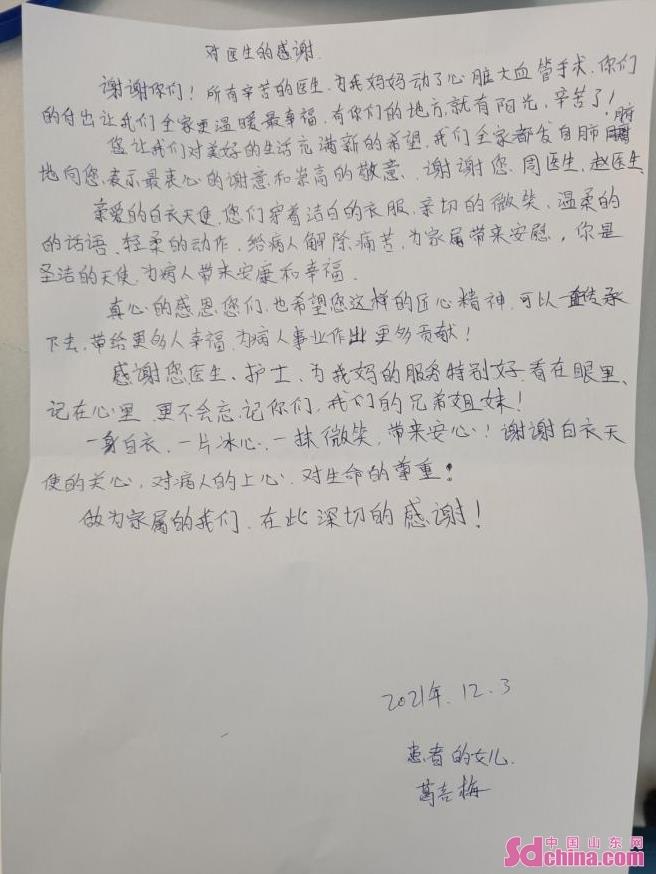 对医生的感谢.
谢谢你们！所有辛苦的医生.为我妈妈动了心脏大血管手术.你们
的付出让我们全家更温暖最幸福.有你们的地方.就有阳光,辛苦了！
您让我们对美好的生活充满新的希望.我们全家都发自肺腑
地向您.表示最衷心的谢意和崇高的敬意、谢谢您.周医生.赵医生
亲爱的白衣天使.您们穿着洁白的衣服.亲切的微笑、温柔的
的话语、轻柔的动作.给病人解除痛苦.为家属带来安慰，你是
圣洁的天使.为病人带来安康和幸福.
真心的感恩您们.也希望您这样的匠心精神.可以一直传承
下去.带给更多人幸福.为病人事业作出更多贡献！
感谢您医生、护士、为我妈的服务特别好.看在眼里、
记在心里 更不会忘记你们.我们的兄弟姐妹！
一身白衣.一片冰心.一抹微笑,带来安心！谢谢白衣天
使的关心,对病人的上心.对生命的尊重！
做为家属的我们.在此深切的感谢！
2021年.12.3
患者的女儿.
葛吉梅
中国山东网
Sdchina.com